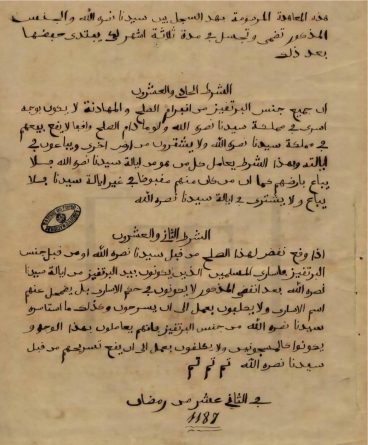 هذه المعاهدة المرسومة بهذ السجل بين سيدنا نصره الله والجنس
المذكور تمضي وتجعل في مدة ثلاثة اشهر يبتدى
بعد ذلك
الشرط الحادي والعشرون
ان جميع جنس البرتقيز من انبرام الصلح والمهادنة لا يكون بوجه
اسرى في مملكة سيدنا نصره الله ولو ما دام الصلح وافيا لا يقع بيعهم
في مملكة سيدنا نصره الله ولا يشترون من ارض اخرى ويباعون في
ايالته وبهذا الشرط يعامل كل من هو من ايالة سيدنا نصره الله بلا
يباع بارضهم كما ان من كان منهم مقبوضا في غير ايالة سيدنا بلا
يباع ولا يشترى في ايالة سيدنا نصره الله
الشرط الثاني والعشرون
اذا وقع نقض لهذا الصلح من قبل سيدنا نصره الله او من قبل جنس
البرتقيز فاسارى المسلمين الذين يكونون بيد البرتقيز من ايالة سيدنا
نصره الله بعد النقض المذكور لا يكونون في حكم الاسارى بل يحمل عنهم
اسم الاسارى ولا يطلبون بعمل الى ان يسرحوا وكذلك ما استاسره
سيدنا نصره الله من جنس البرتقيز فانهم يعاملون بهذا الوجه و
يكونوا ولا يكلفون بعمل الى ان يقع تسريحهم من قبل
سيدنا نصره الله تم تم تم
في الثاني عشر من رمضان
1187